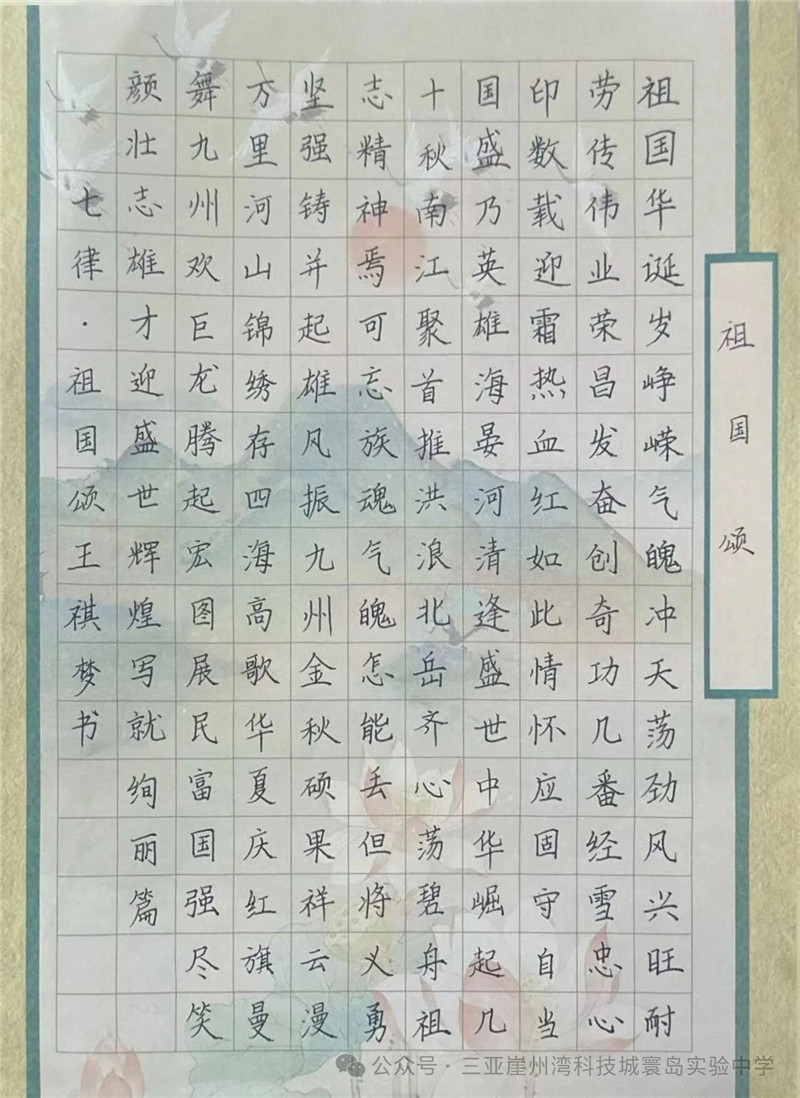 祖国颂
祖国华诞岁峥嵘气魄冲天荡劲风兴旺耐
劳传伟业荣昌发奋创奇功几番经雪忠心
印数载迎霜热血红如此情怀应固守自当
国盛乃英雄海晏河清逢盛世中华崛起几
十秋南江聚首推洪浪北岳齐心荡碧舟祖
志精神焉可忘族魂气魄怎能丢但将义勇
坚强铸并起雄风振九州金秋硕果祥云漫
万里河山锦绣存四海高歌华夏庆红旗曼
舞九州欢巨龙腾起宏图展民富国强尽笑
颜壮志雄才迎盛世辉煌写就绚丽篇
七律·祖国颂王祺梦书
公众号·三亚崖州湾科技城寰岛实验中学